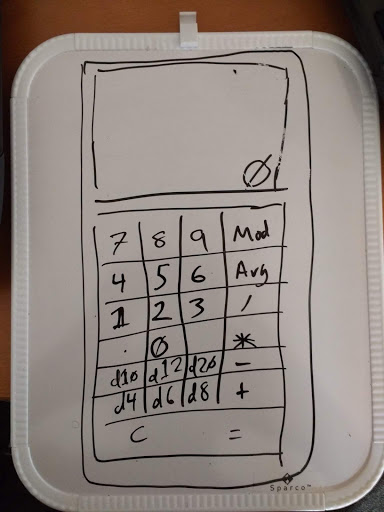 0
7 8 9 Mod
4 5 6 Avg
1 2 3 /
. 0 *
d10 d12 d20 -
d4 d6 d8 +
C =
Sparco™